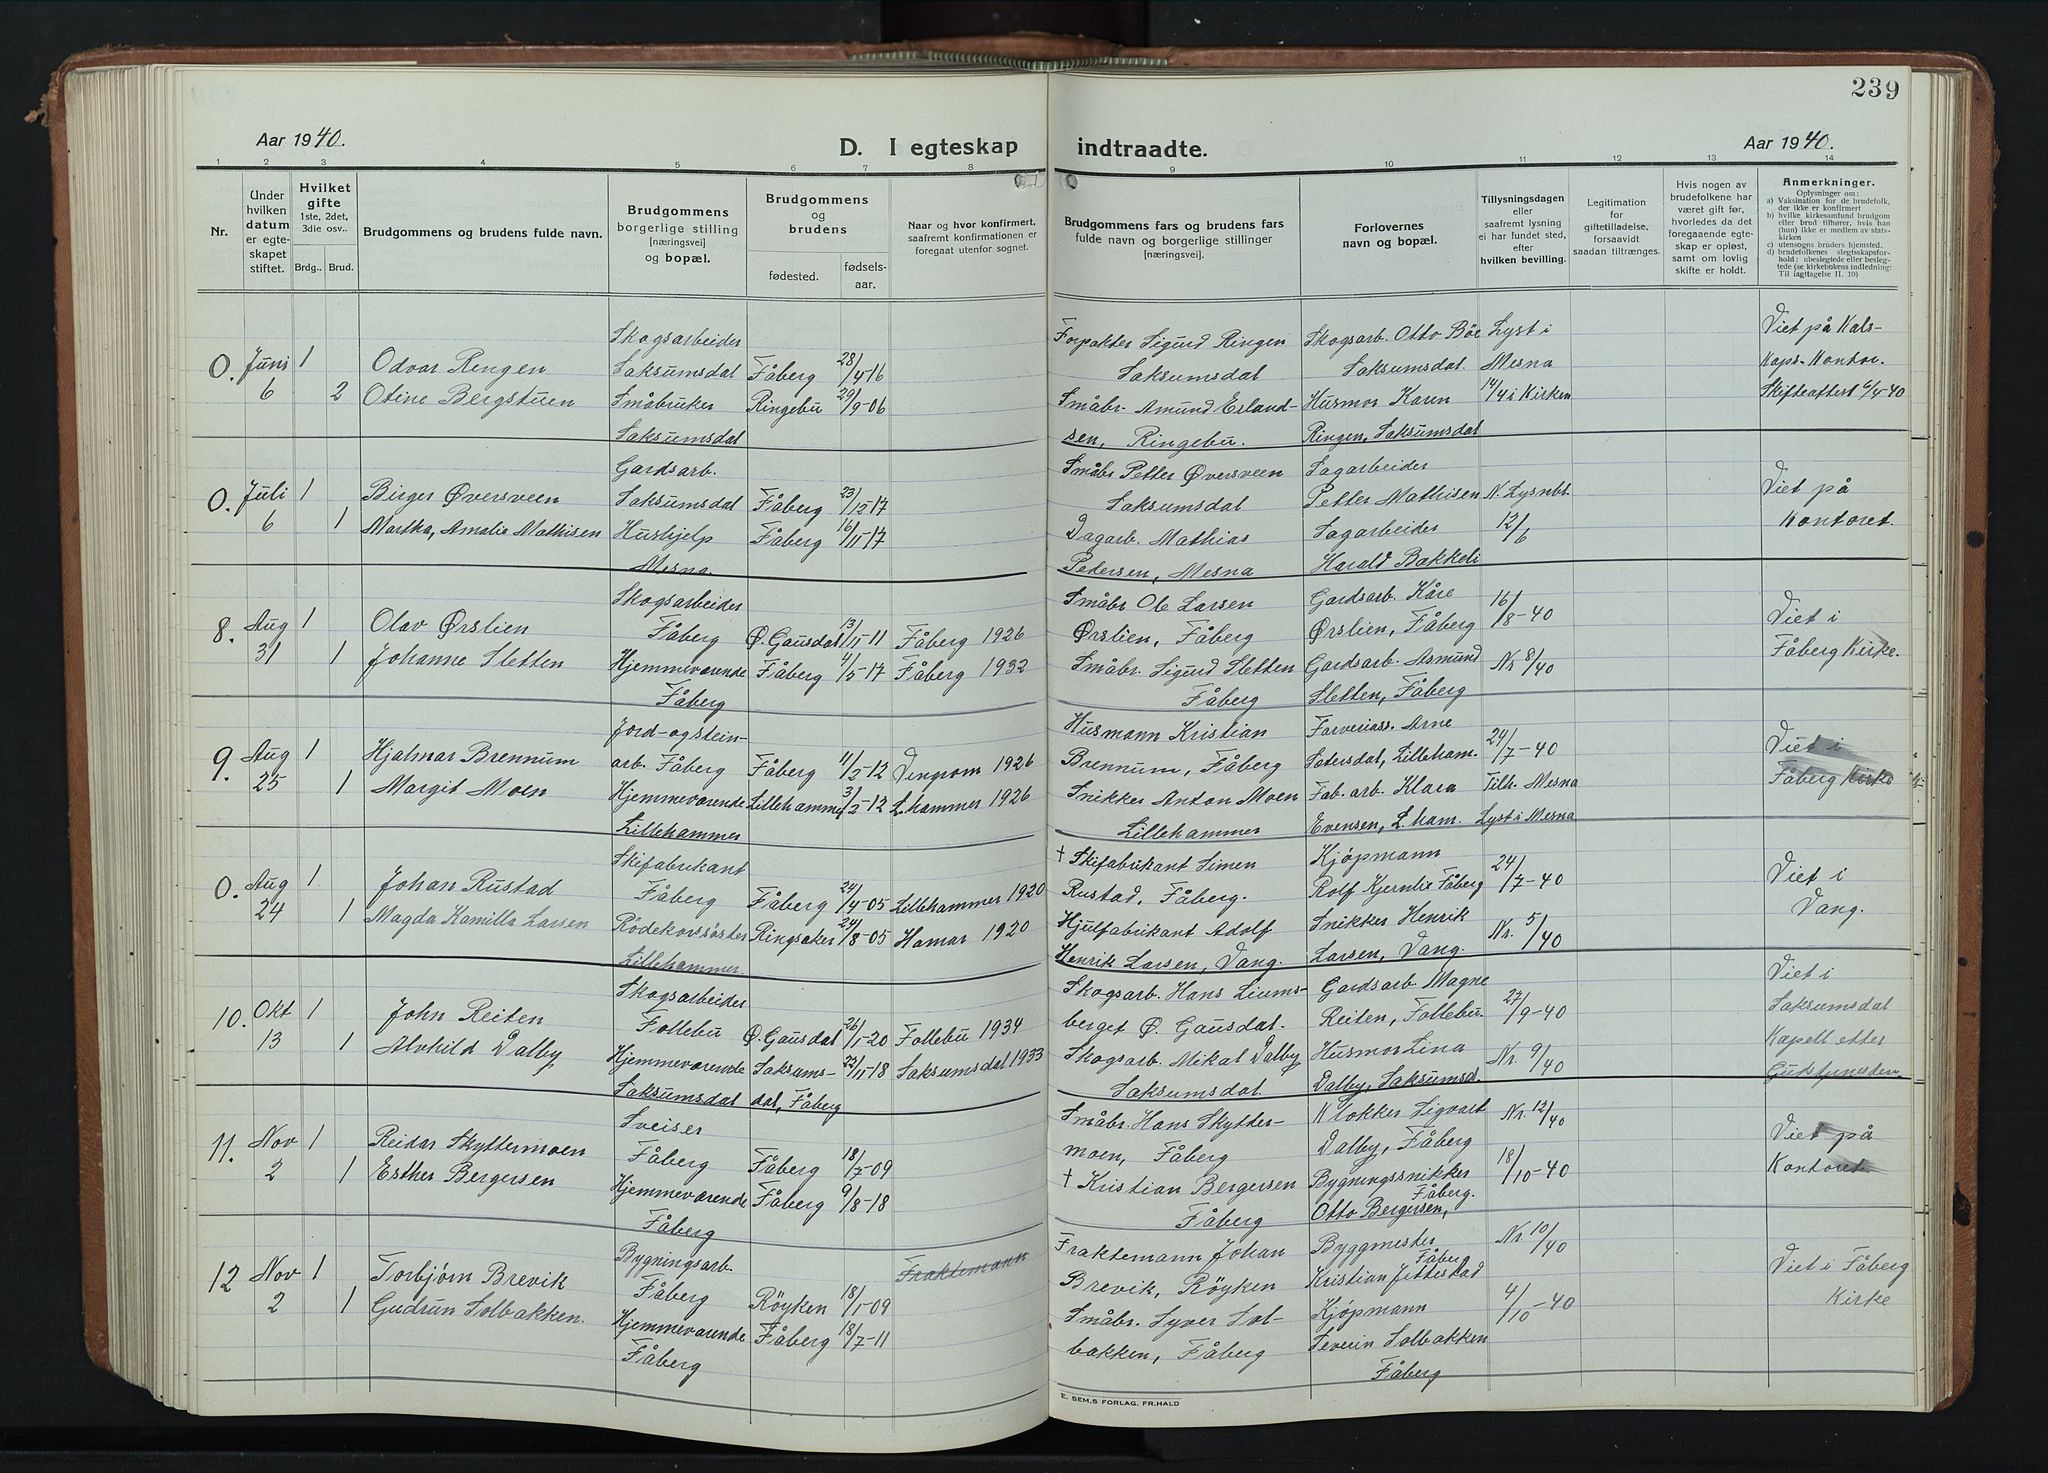 239
Aar 1940.
D. I egteskap
indtraadte.
Aar 1940.
1 2 3 4 5 6 7 8 9 10 11 12 13 14
Nr.
Under hvilken datum er egte-skapet stiftet.
Hvilket gifte 1ste, 2det, 3die osv..
Brdg..
Brud.
Brudgommens og brudens fulde navn.
Brudgommens borgerlige stilling [næringsvei] og bopæl.
Brudgommens og brudens
fødested.
fødsels-aar.
Naar og hvor konfirmert, saafremt konfirmationen er foregaat utenfor sognet.
Brudgommens fars og brudens fars fulde navn og borgerlige stillinger [næringsvei].
Forlovernes navn og bopæl.
Tillysningsdagen eller saafremt lysning ei har fundet sted, efter hvilken bevilling.
Legitimation for giftetilladelse, forsaavidt saadan tiltrænges.
Hvis nogen av brudefolkene har været gift før, hvorledes da det foregaaende egte-skap er opløst, samt om lovlig skifte er holdt.
Anmerkninger.
Oplysninger om:
a) Vaksination for de brudefolk, der ikke er konfirmert
b) hvilke kirkesamfund brudgom eller brud tilhører, hvis han (hun) ikke er medlem av stats-kirken
c) utensogns bruders hjemsted.
d) brudefolkenes slegtsskapsfor-hold: ubeslegtede eller besleg-tede (se kirkebokens indledning: Til iagttagelse II. 10)
Skogsarbeider
Forpakter Sigurd Ringen
Skogsarb. Otto Böe
Lyst i
Viet på Kals-
0. Juni 1 Odvar Ringen Saksumsdal Fåberg 28/4-16
Saksumsdal
Saksumsdal.
Mesna
Kaps. Kontor.
6 2 Otine Bergstuen Småbruker Ringebu 29/9-06
Småbr. Amund Erland-
Husmor Karen
14/4 i Kirken
Skifteattest 6/4-40
Saksumsdal
sen, Ringebu.
Ringen, Saksumsdal
Gardsarb.
Småbr Petter Øversveen
Sagarbeider
0. Juli 1 Birger Øversveen Saksumsdal Fåberg 23/12-17
Saksumsdal
Petter Mathisen
N. Lysnbl.
Viet på
6 1 Martha, Amalia Mathisen Hushjelp Fåberg 16/11-17
Dagarb. Mathias
Sagarbeider
12/6
Kontoret.
Mesna.
Pedersen, Mesna
Harald Bakkeli
Skogsarbeider
Småbr Ole Larsen
Gardsarb. Kåre
16/8-40
8. Aug 1 Olav Ørslien Fåberg Ø. Gausdal 13/11-11 Fåberg 1926
Ørslien, Fåberg
Ørslien, Fåberg
Viet i
31 1 Johanne Sletten Hjemmeværende Fåberg 4/5-17 Fåberg 1932
Småbr. Sigurd Sletten
Gardsarb. Asmund
Nr 8/40
Fåberg Kirke.
Fåberg
Fåberg
Sletten, Fåberg
Jord-og stein-
Husmann Kristian
Farveriass. Arne
24/7-40
9. Aug 1 Hjalmar Brennum arb. Fåberg Fåberg 11/5-12 Vingrom 1926
Brennum, Fåberg
Sætersdal, Lilleham.
Viet i
25 1 Margit Moen Hjemmeværende Lillehammer 31/2-12 L.hammer 1926
Snikker Anton Moen
Fab. arb. Klara
Tilh. Mesna
Fåberg Kirke
Lillehammer
Lillehammer
Evensen, L. ham.
Lyst i Mesna
Skifabrikant
† Skifabrikant Simen
Kjøpmann
24/7-40
0. Aug 1 Johan Rustad Fåberg Fåberg 24/4-05 Lillehammer 1920
Rustad, Fåberg.
Rolf Kjernlie Fåberg
Viet i
24 1 Magda Kamilla Larsen Rödekorssöster Ringsaker 24/8-05 Hamar 1920
Hjulfabrikant Adolf
Snikker Henrik
Nr. 5/40
Vang.
Lillehammer.
Henrik Larsen, Vang.
Larsen, Vang.
Skogsarbeider
Skogsarb. Hans Liums-
Gardsarb. Magne
27/9-40
Viet i
10. Okt 1 John Reiten Follebu Ø. Gausdal 26/1-20 Follebu 1934
berget Ø. Gausdal.
Reiten, Follebu.
Saksumsdal
13 1 Alvhild Dalby Hjemmeværende Saksums- 22/11-18 Saksumsdal 1933
Skogsarb. Mikal Dalby
Husmor Lina
Nr. 9/40
Kapell etter
Saksumsdal dal, Fåberg
Saksumsdal.
Dalby, Saksumsd.
Gudstjenesten.
Sveiser
Småbr. Hans Skytter-
Klokker Sigvart
Nr. 12/40
11. Nov 1 Reidar Skyttermoen Fåberg Fåberg 18/7-09
moen, Fåberg
Dalby, Fåberg
Viet på
2 1 Esther Bergersen Hjemmeværende Fåberg 9/8-18
† Kristian Bergersen
Bygningssnikker
18/10-40
Kontoret
Fåberg
Fåberg
Otto Bergersen, Fåberg.
Bygningsarb.
Fraktemann
Fraktemann Johan
Byggmester
Nr 10/40
12 Nov 1 Torbjørn Brevik Fåberg Röyken 18/1-09
Brevik, Röyken
Kristian Jettestad Fåberg
Viet i Fåberg
2 1 Gudrun Solbakken. Hjemmeværende Fåberg 18/7-11
Småbr. Syver Sol-
Kjøpmann
4/10-40
Kirke
Fåberg
bakken, Fåberg
Severin Solbakken
Fåberg
E. SEM,S FORLAG, FR.HALD